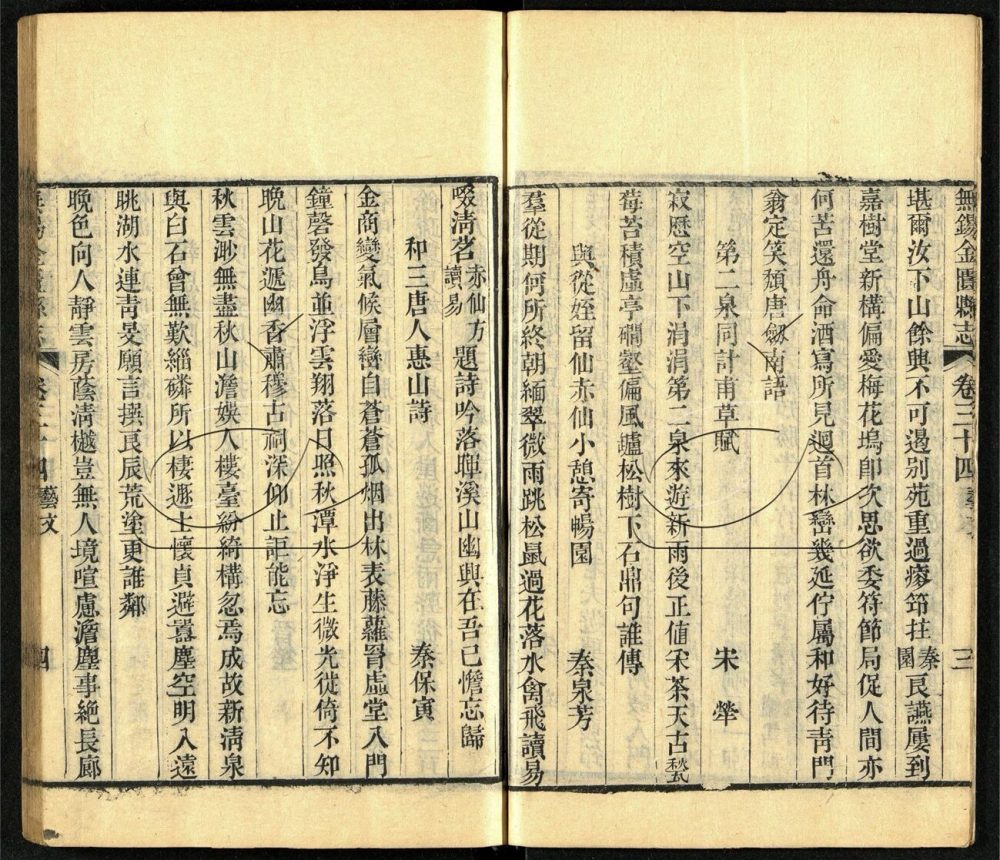 無錫金匱縣志 卷三十四 藝文 三
堪爾汝下山餘興不可遏別苑重過瘳筇拄秦園良讌屢到
嘉樹堂新構偏愛梅花塢卽次思欲委符節局促人間亦
何苦還舟命酒寫所見迴首林巒幾延佇屬和好待靑門
翁定笑頹唐劒南語
第二泉同計甫草賦 宋犖
寂歷空山下涓涓第二泉來遊新雨後正値采茶天古甃
莓苔積虛亭磵壑偏風爐松樹下石鼎句誰傳
與從姪留仙赤仙小憩寄暢園 秦泉芳
羣從期何所終朝緬翠微雨跳松鼠過花落水禽飛讀易
啜淸茗赤仙方讀易題詩吟落暉溪山幽興在吾已憺忘歸
和三唐人惠山詩 秦保寅
金商變氣候層巒自蒼蒼孤烟出林表藤蘿罥虛堂入門
鐘磬發鳥並浮雲翔落日照秋潭水淨生微光徙倚不知
晚山花遞幽香肅穆古祠深仰止詎能忘
秋雲渺無盡秋山澹娛人樓臺紛綺構忽焉成故新淸泉
與白石曾無歎緇磷所以棲遯士懷貞避囂塵空明入遠
眺湖水連靑旻願言撰良辰荒塗更誰鄰
晚色向人靜雲房蔭淸樾豈無人境喧慮澹塵事絶長廊
卷三十四 藝文 四